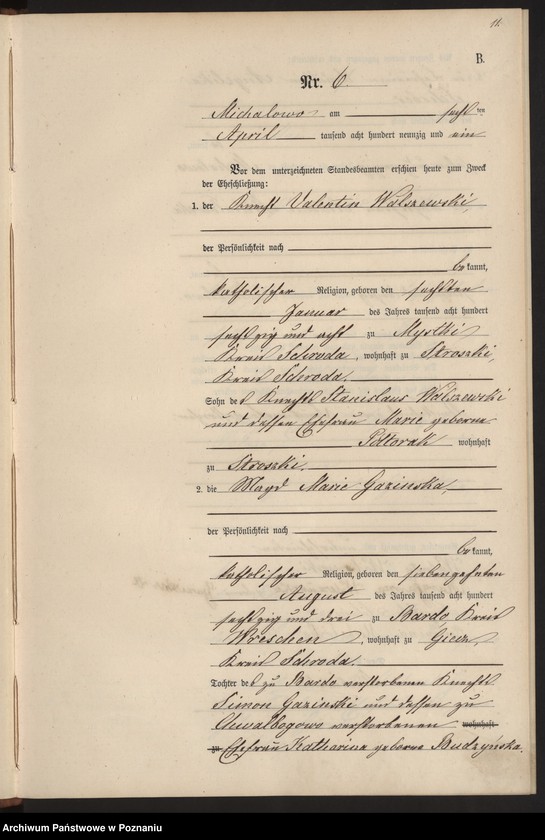 11.
B.
Nr. 6
Michalowo am sechsten
April tausend acht hundert neunzig und ein
Vor dem unterzeichneten Standesbeamten erschien heute zum Zweck
der Eheschließung:
1. der Knecht Valentin Walszewski,
der Persönlichkeit nach
bekannt,
katholischer Religion, geboren den sechsten
Januar des Jahres tausend acht hundert
sechzig und acht zu Mystki
Kreis Schroda, wohnhaft zu Stroszki,
Kreis Schroda.
Sohn des Knechts Stanislaus Walszewski
und dessen Ehefrau Marie geborne
Poltorak wohnhaft
zu Stroszki.
2. die Magd Marie Gazinska,
der Persönlichkeit nach
bekannt,
katholischer Religion, geboren den siebenzehnten
August des Jahres tausend acht hundert
sechzig und drei zu Bardo Kreis
Wreschen, wohnhaft zu Giecz,
Kreis Schroda.
Tochter des zu Bardo verstorbenen Knechts
Simon Gazinski und dessen zu
Chwalbogowo verstorbenen wohnhaft
zu Ehefrau Katharina geborne Budzyńska.
Archiwum Państwowe w Poznaniu